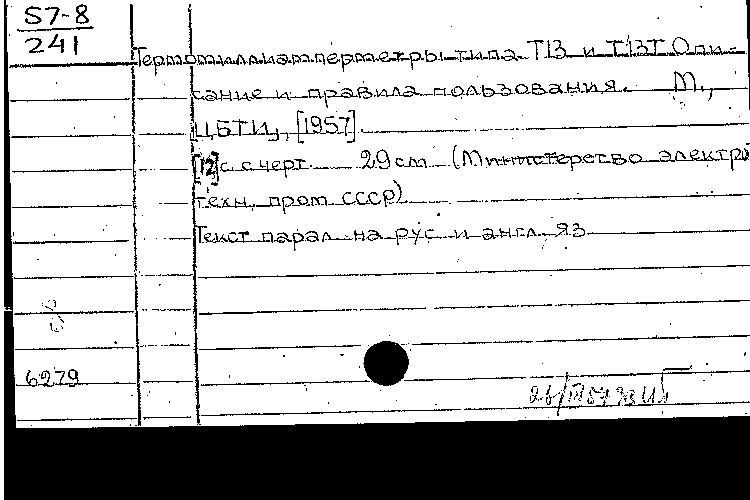 57-8
241
Термомиллиамперметры типа Т13 и Т13Т Опи-
сание и правила пользования. М.,
ЦБТИ, [1957].
[12]с с черт. 29 см (Министерство электро
техн. пром СССР)
Текст парал. на рус и англ. яз
6279